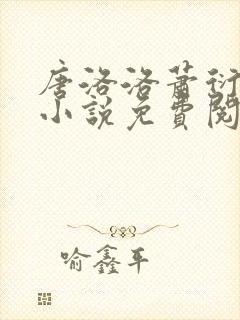 唐洛洛萧衍
小说免费阅
喻鑫平